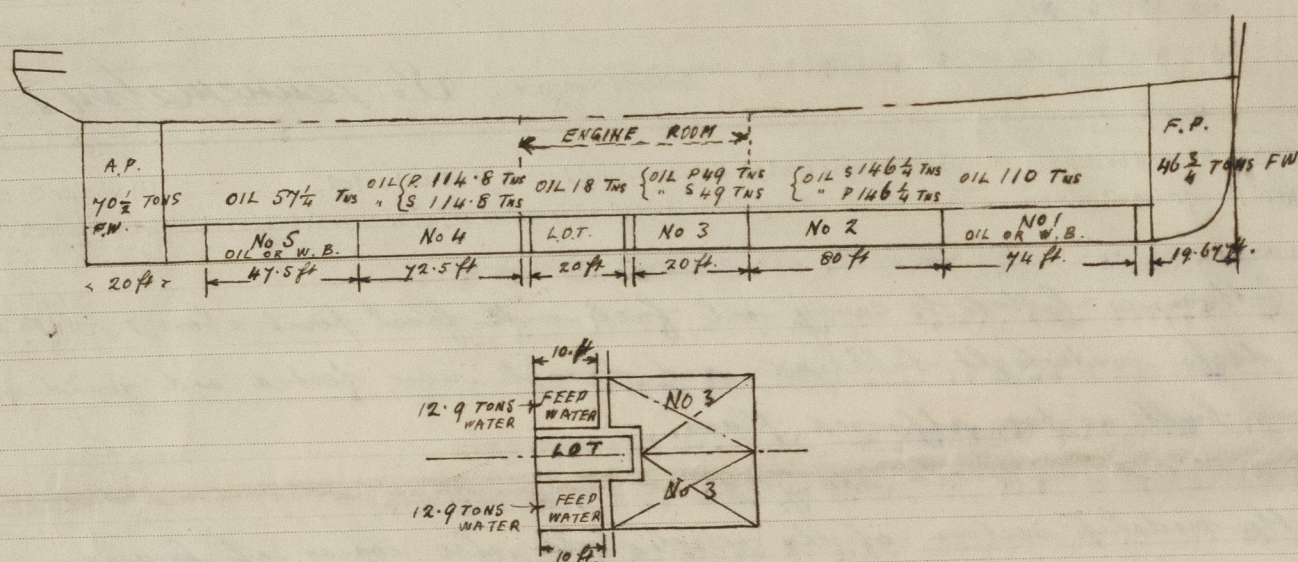 ENGINE ROOM
A.P.
70½ TONS
F.W.
OIL 57¼ TNS
OIL { P. 114.8 TNS
" { S 114.8 TNS
OIL 18 TNS
{ OIL P 49 TNS
{ " S 49 TNS
{ OIL S 146¼ TNS
{ " P 146¼ TNS
OIL 110 TNS
F.P.
46¾ TONS FW
No 5
OIL OR W.B.
No 4
L.O.T.
No 3
No 2
No 1
OIL OR W.B.
20 ft
47.5 ft
72.5 ft
20 ft
20 ft.
80 ft
74 ft.
19.67 ft.
10. ft
12.9 TONS
WATER
FEED
WATER
No 3
LOT
No 3
12.9 TONS
WATER
FEED
WATER
10 ft